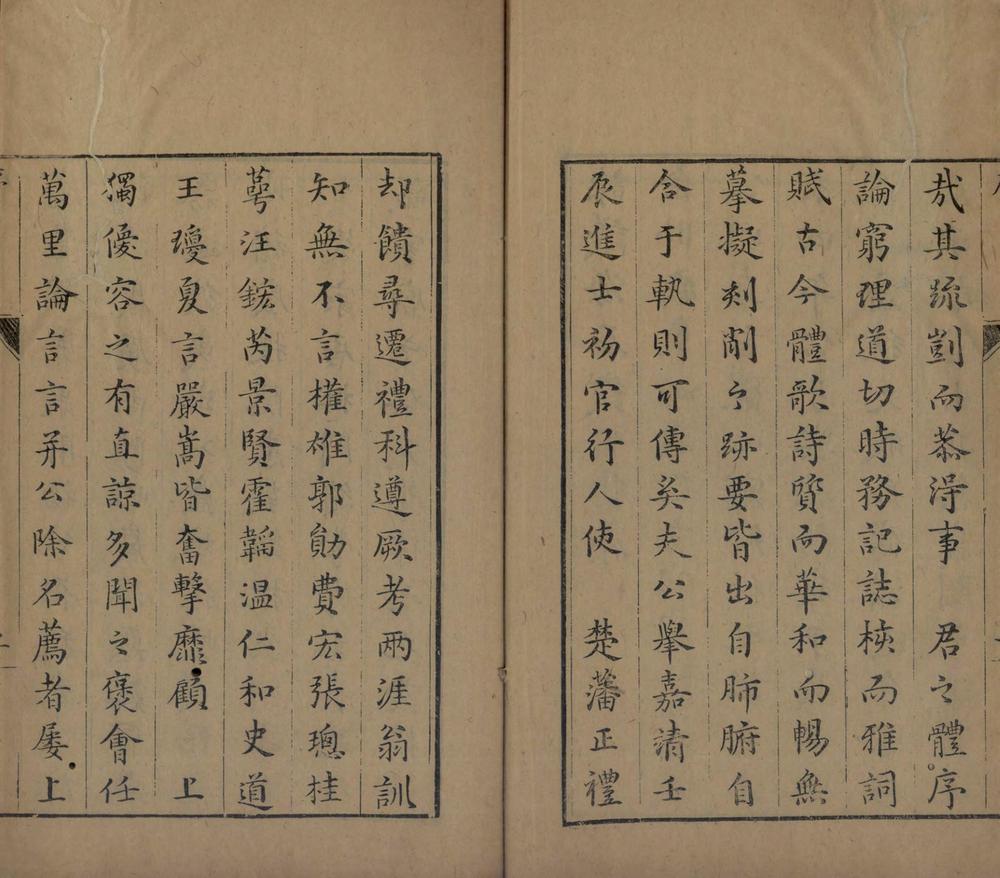 哉其疏剴而恭淂事　君之體序
論窮理道切時務記誌核而雅詞
賦古今體歌詩質而華和而暢無
摹擬刻削之跡要皆出自肺腑自
合于軌則可傳矣夫公舉嘉清壬
辰進士初官行人使　楚藩正禮
却饋尋遷禮科遵厥考兩涯翁訓
知無不言權雄郭勛費宏張璁桂
萼汪鋐芮景賢霍韜温仁和史道
王瓊夏言嚴嵩皆奮擊靡顧　上
獨優容之有直諒多聞之褒會任
萬里論言言并公除名薦者屡上